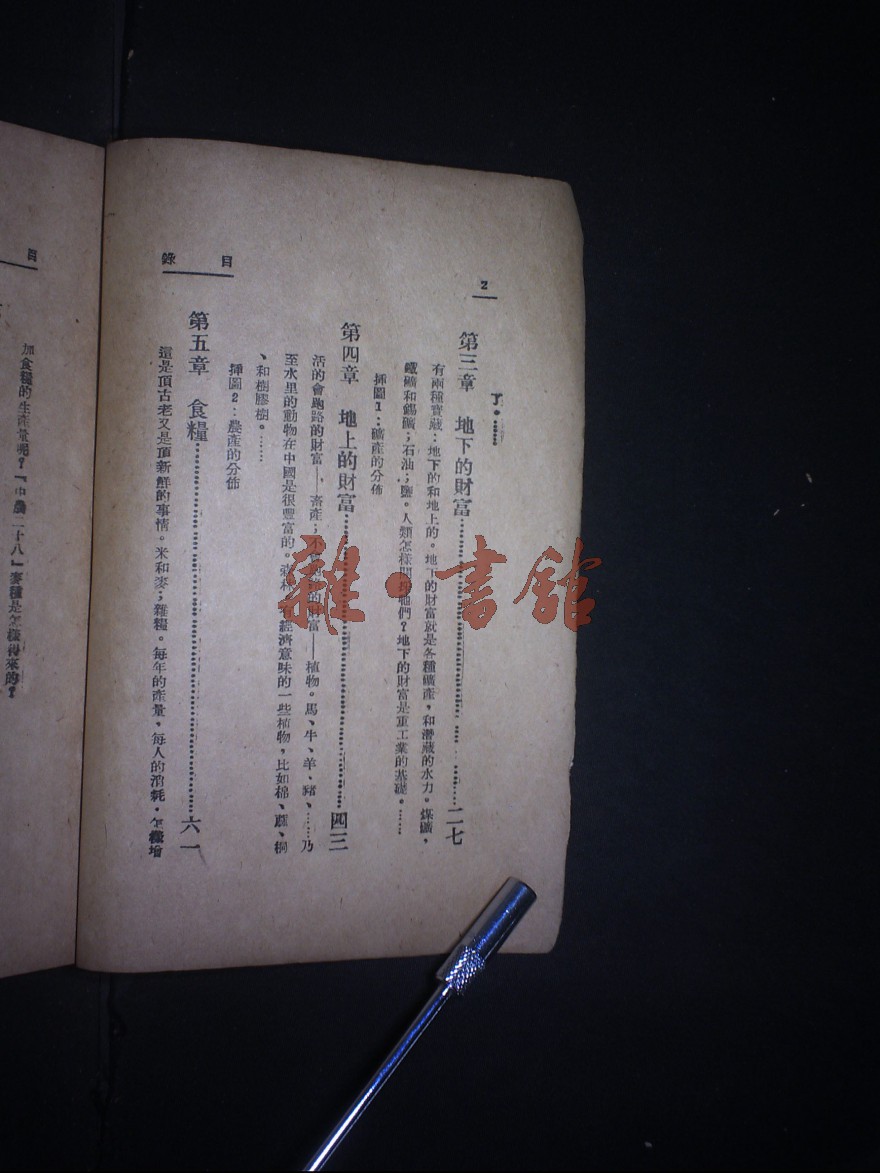 目錄
2
了。……
第三章 地下的財富……二七
有兩種寶藏：地下的和地上的。地下的財富就是各種礦產，和潛藏的水力。煤礦，
鐵礦和錫礦；石油；鹽。人類怎樣開採牠們？地下的財富是重工業的基礎。……
揷圖1：礦產的分佈
第四章 地上的財富……四三
活的會跑路的財富——畜產；不會跑路的財富——植物。馬、牛、羊、豬、……乃
至水里的動物在中國是很豐富的。森林。有經濟意味的一些植物，比如棉、蔴、桐
、和樹膠樹。……
揷圖2：農產的分佈
第五章 食糧……六一
這是頂古老又是頂新鮮的事情。米和麥；雜糧。每年的產量，每人的消耗，怎樣增
目
加食糧的生產量呢？『中農二十八』麥種是怎樣得來的？
雜·書館